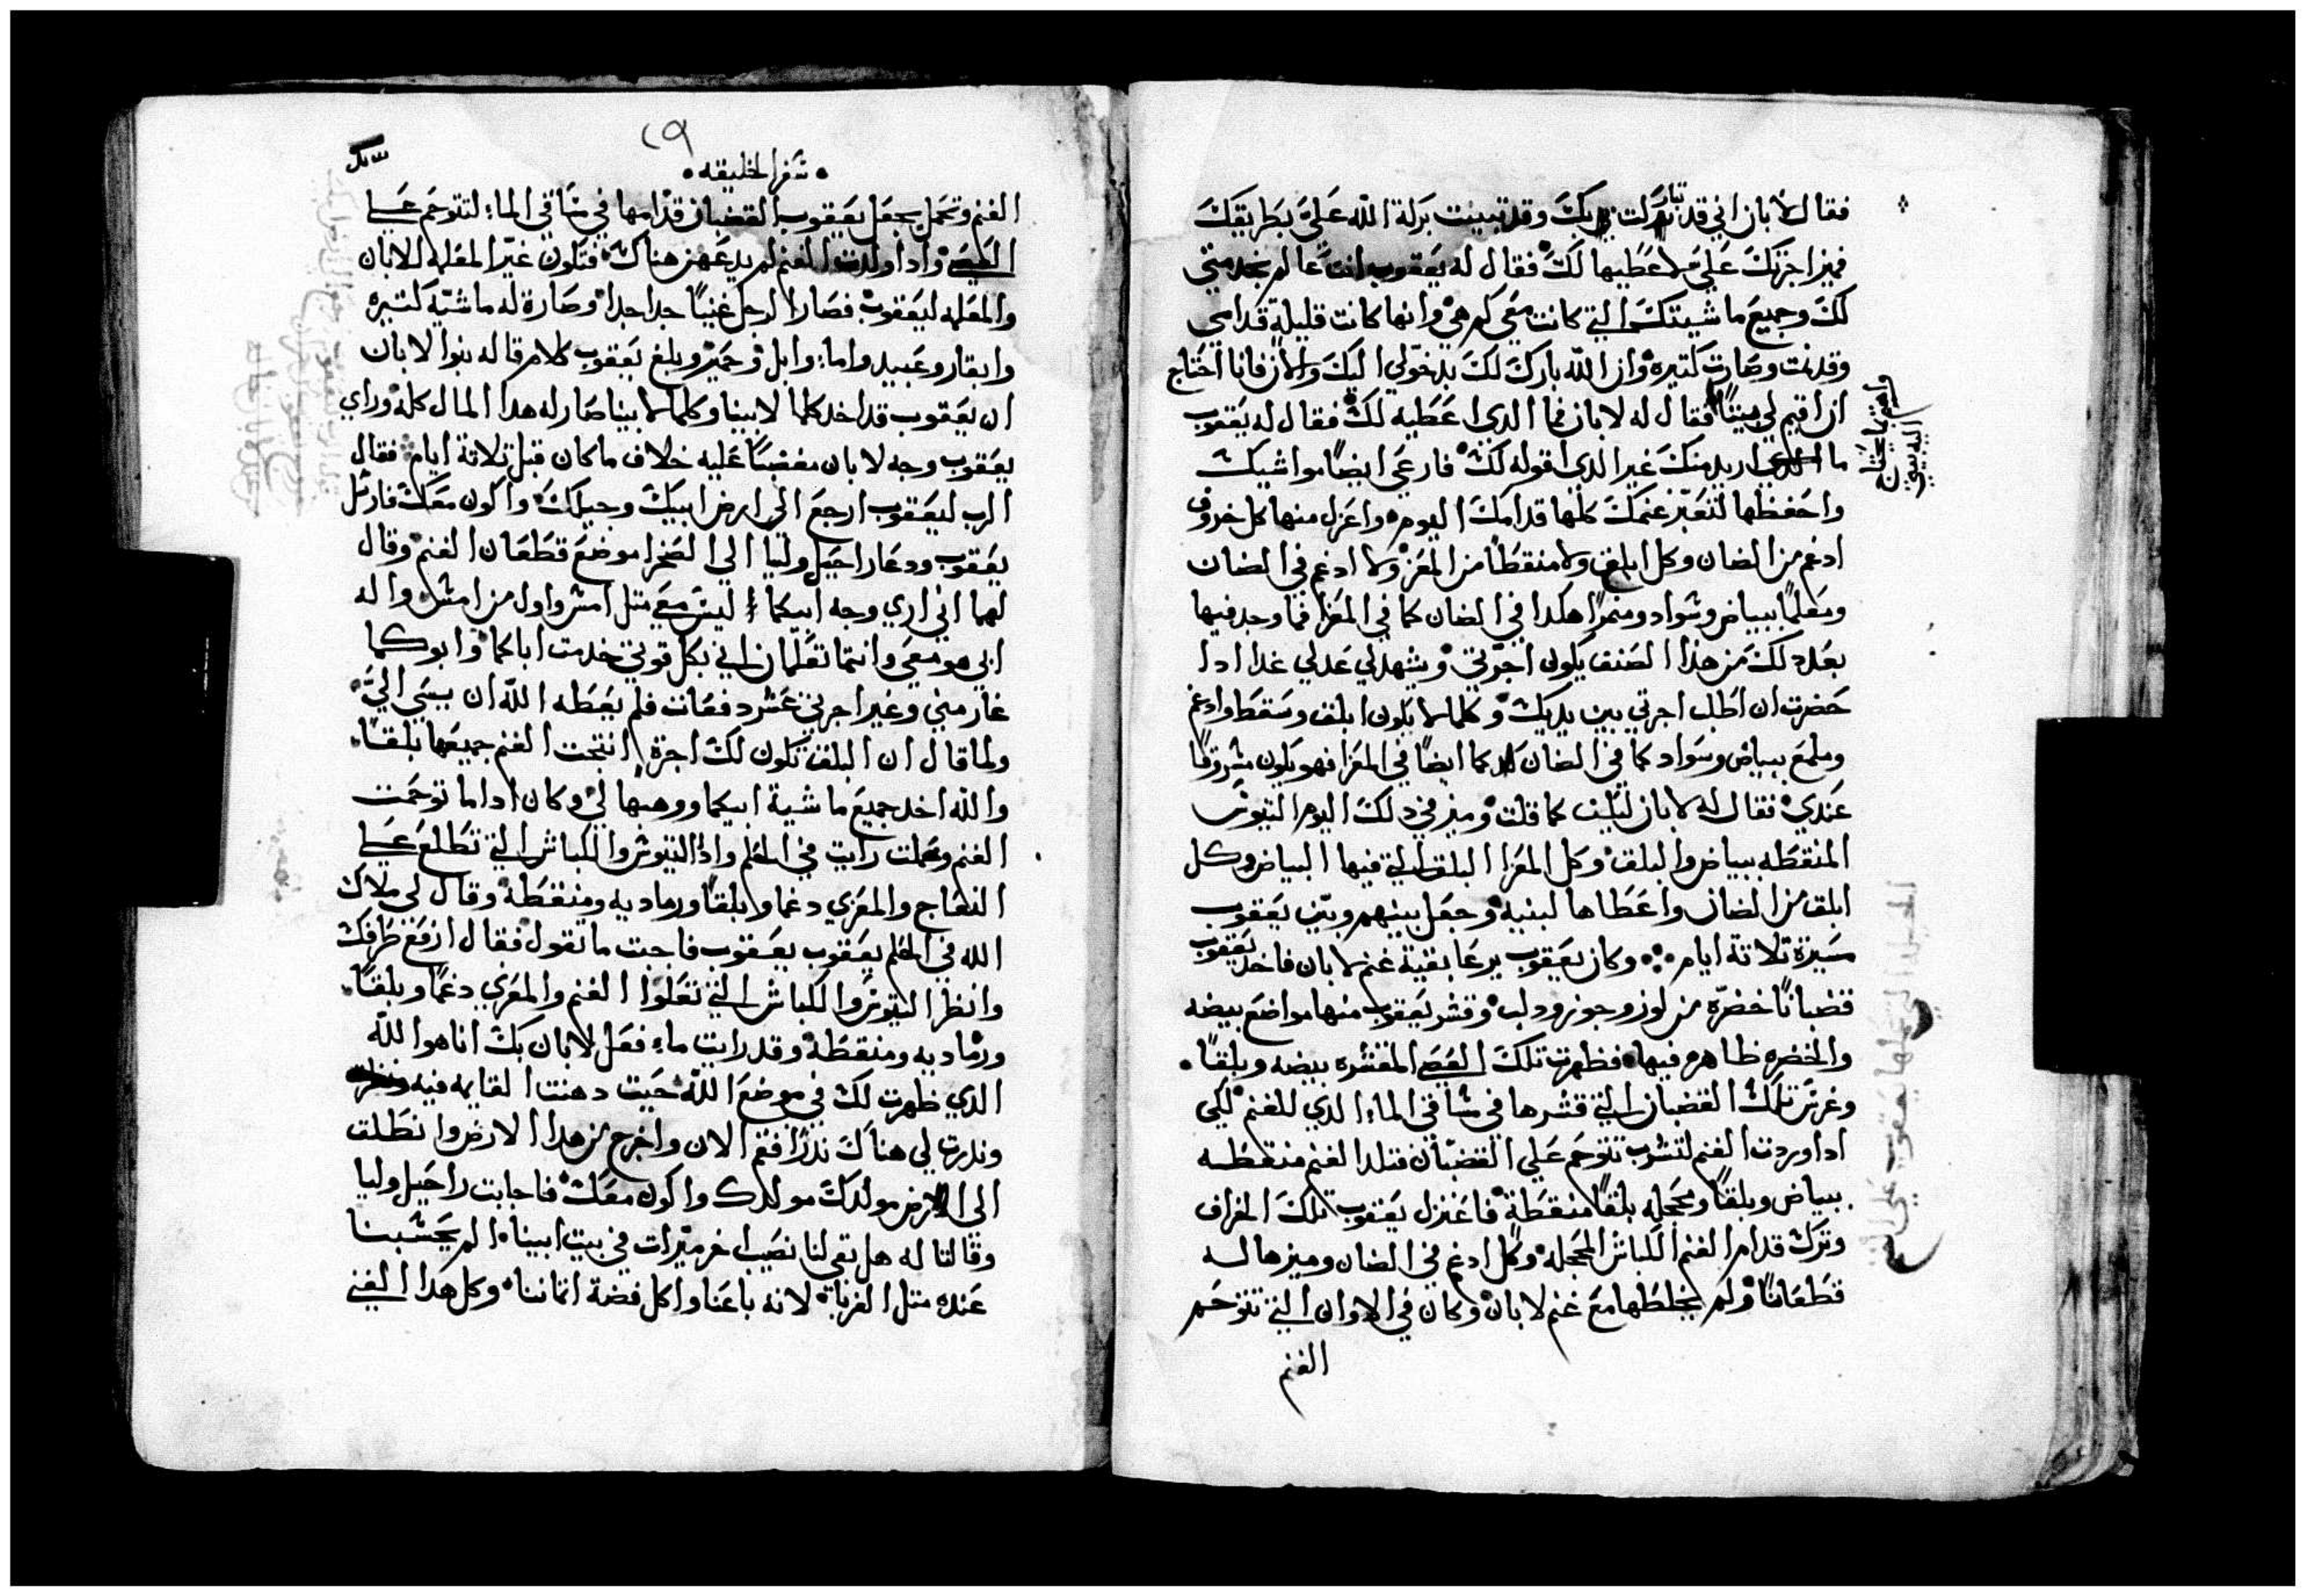 فقال لابان اني قد تباركت بك وقد تبينت بركة الله علي بطريقك
فميز اجرتك علي لاعطيها لك فقال له يعقوب انت عالم بخدمتي
لك وجميع ماشيتك التي كانت معي كم هي وانها كانت قليلة قدامي
وقد نمت وصارت كتيره وان الله بارك لك بدخولي اليك والان فانا احتاج
ان اقيم لي بيتا فقال له لابان فما الدي اعطيه لك فقال له يعقوب
ما اريد منك غير الدي اقوله لك فارعي ايضا مواشيك
واحفظها لتعبر غنمك كلها قدامك اليوم واعزل منها كل خروف
ادغم من الضان وكل ابلق ولا منقطا من المعز ولا ادغم في الضان
ومعلما ببياض وسواد ومنمرا هكدا في الضان كما في المعزا فما وجد فيها
بعد دلك من هذا الصنف يكون اجرتي ويشهد لي عدلي غدا ادا
حضرت ان اطلب اجرتي بين يديك وكلما لا يكون ابلق ومنقط وادغم
وملمع ببياض وسواد كما في الضان كما ايضا في المعزا فهو يكون مسروقا
عندي فقال له لابان ليكن كما قلت وميز في دلك اليوم التيوس
المنقطه ببياض والبلق وكل المعزا البلق التي فيها البياض وكل
ابلق من الضان واعطاها لبنيه وجعل بينهم وبين يعقوب
مسيرة تلاتة ايام وكان يعقوب يرعا بقية غنم لابان فاخد يعقوب
قضبانا خضره من لوز وجوز ودلب وقشر يعقوب منها مواضع بيضه
والخضره ظاهره فيها فظهرت تلك العصي المقشره بيضه وبلقا
وغرس تلك القضبان التي قشرها في ساقي الماء الدي للغنم لكي
ادا وردت الغنم لتشرب تتوحم علي القضبان فتلد الغنم منقطه
ببياض وبلقا ومحجله بلقا منقطة فاعتزل يعقوب تلك الخراف
وترك قدام الغنم الكباش المحجله وكل ادغم في الضان وميزها له
قطعانا ولم يخلطها مع غنم لابان وكان في الاوان التي تتوحم
الغنم
٢٩
سفر الخليقه
الغنم وتحمل يجعل يعقوب القضبان قدامها في ساقي الماء لتتوحم علي
العصي وادا ولدت الغنم لم يدعهن هناك فتكون غير المعلمه للابان
والمعلمه ليعقوب فصار الرجل غنيا جدا جدا وصارة له ماشية كتيره
وابقار وعبيد واماء وابل وحمير وبلغ يعقوب كلام قاله بنوا لابان
ان يعقوب قد اخد كلما لابينا وكلما لابينا صار له هدا المال كله وراي
يعقوب وجه لابان مغضبا عليه خلاف ما كان قبل تلاتة ايام فقال
الرب ليعقوب ارجع الي ارض ابيك وجيلك واكون معك فارسل
يعقوب ودعا راحيل وليا الي الصحرا موضع قطعان الغنم وقال
لهما اني اري وجه ابيكما ليس معي متل امس واول من امس واله
ابي هو معي وانتما تعلمان اني بكل قوتي خدمت اباكما وابوكما
غار مني وغير اجرتي عشر دفعات فلم يعطه الله ان يسي الي
ولما قال ان البلق تكون لك اجرة انتجت الغنم جميعها بلقا
والله اخد جميع ماشية ابيكما ووهبها لي وكان ادا ما توحمت
الغنم وحملت رايت في الحلم وادا التيوس والكباش التي تطلع علي
النعاج والمعزي دغما وبلقا ورماديه ومنقطة وقال لي ملاك
الله في الحلم يعقوب يعقوب فاجبت ما تقول فقال ارفع طرفك
وانظر التيوس والكباش التي تعلوا الغنم والمعزي دغما وبلقا
ورماديه ومنقطة وقد رايت ما فعل لابان بك انا هوا الله
الدي ظهرت لك في موضع الله حيت دهنت القايمه فيه
وندرت لي هناك ندرا فقم الان واخرج من هدا الارض وانطلق
الي الارض مولدك واكون معك فاجابت راحيل وليا
وقالتا له هل بقي لنا نصيب اخر ميرات في بيت ابينا الم يحسبنا
عنده متل الغربا لانه باعنا واكل فضة اتماننا وكل هدا الغني